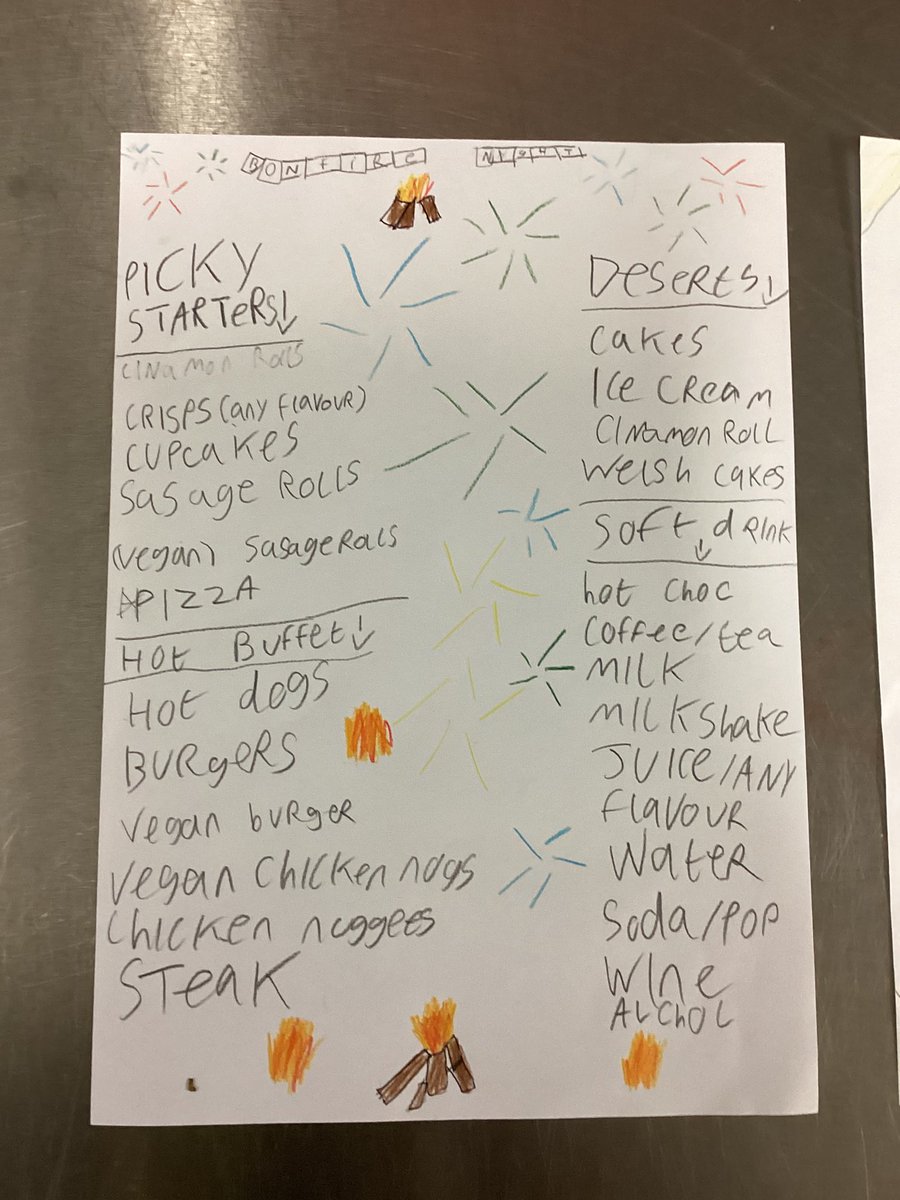 BONFIRE NIGHT
PICKY
STARTERS↓
CINamon Rolls
CRISPS (any flavouR)
CUPCaKeS
SaSage ROLLS
(vegan) SaSageRolls
PIZZA
HOt Buffet↓
HOt dogS
BURgeRS
Vegan buRger
Vegan ChICKen nugs
ChICKen nuggees
STeaK
DeSeRtS↓
CaKeS
Ice CReam
CINamon Roll
WelSh caKeS
Soft dRInk
↓
hot Choc
Coffee/tea
MILK
MILKShaKe
JUICe/ANY
flavouR
WateR
Soda/POP
WIne
ALChoL